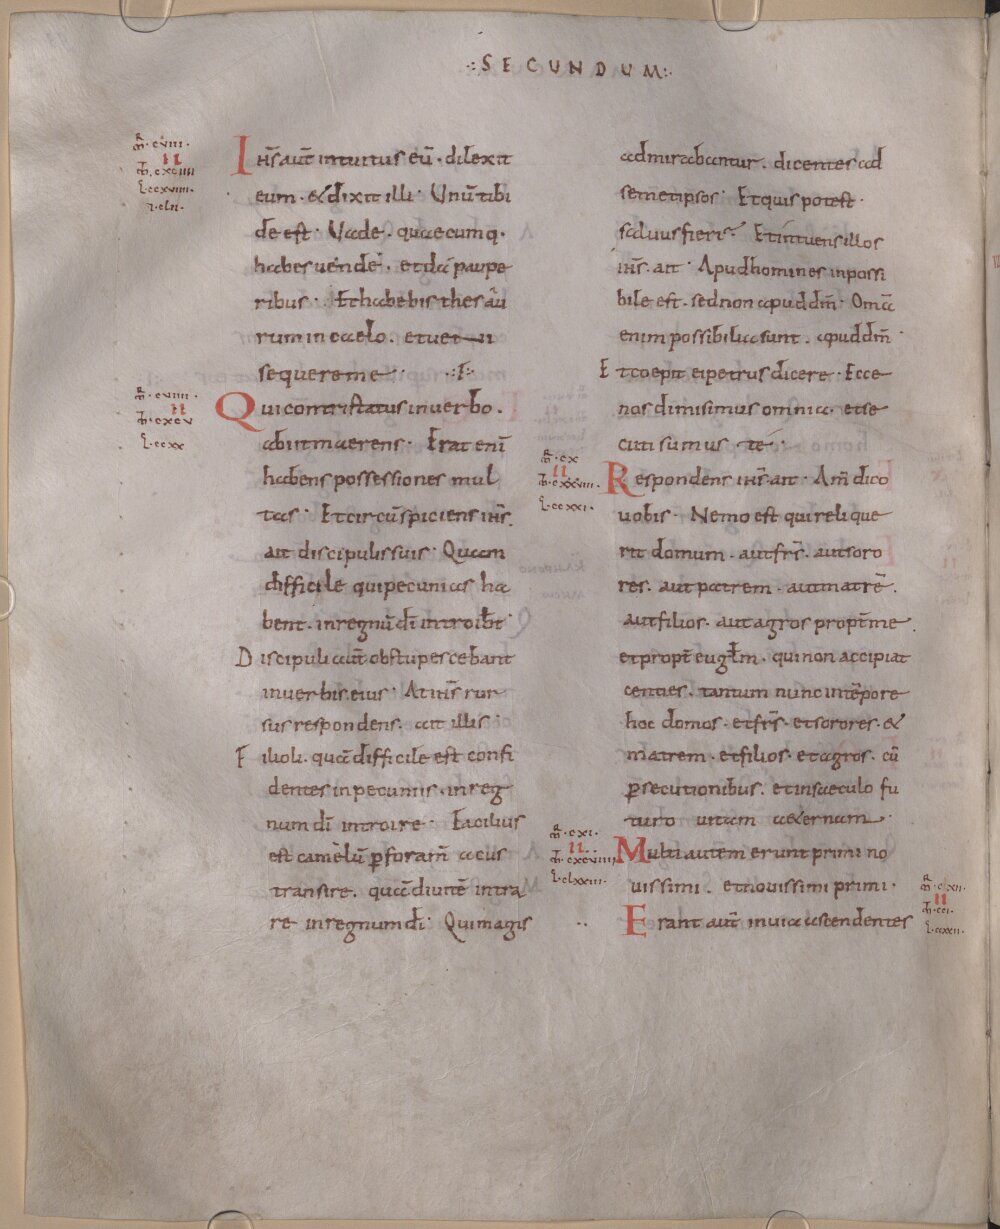 ·:SECUNDUM:·
R̄
m̄·cviii·
II
m̄·cxciiii
L·ccxviiii·
Ihs̄ aut̄ intuitus eū· dilexit
eum· & dixit illi· Unū tibi
de est· Uade· quaecumq·
habes uende· et da paupe
ribus· Et habebis thesau
rum in caelo· et ueni
sequere me·
R̄
m̄·cviiii·
II
m̄·cxcv
L·ccxx
Qui contristatus in uerbo·
abiit maerens· Erat enī
habens possessiones mul
tas· Et circūspiciens ihs̄
ait discipulis suis· Quam
difficile qui pecunias ha
bent· in regnū dī introibt̄
Discipuli aut̄ obstupescebant
in uerbis eius· At ihs̄ rur
sus respondens· ait illis·
Filioli· quā difficile est confi
dentes in pecuniis· in reg
num dī introire· Facilius
est camelū ꝑ foram̄ acus
transire· quā diuitē intra
re in regnum dī· Qui magis
admirabantur· dicentes ad
semetipsos· Et quis potest·
saluus fieri· Et intuens illos
ihs̄· ait· Apud homines inpossi
bile est· sed non apud dm̄· Omā
enim possibilia sunt· apud dm̄·
Et coepit ei petrus dicere· Ecce
nos dimisimus omnia· et se
cuti sumus te·
R̄
m̄·cx
II
m̄·cxxviii·
L·ccxxi·
Respondens ihs̄ ait· Am̄ dico
uobis· Nemo est qui relique
rit domum· aut frs̄· aut soro
res· aut patrem· aut matrē·
aut filios· aut agros propt̄ me·
et propt̄ euglm̄· qui non accipiat
centies· tantum nunc in tēpore
hoc domos· et frs̄· et sorores· &
matrem· et filios· et agros· cū
ꝑsecutionibus· et in saeculo fu
turo uitam aeternam·
R̄
m̄·cxi·
II
m̄·cxcviiii·
L·clxxiii·
Multi autem erunt primi no
uissimi· et nouissimi primi·
Erant aut̄ in uia ascendentes
R̄
m̄·cxii·
II
m̄·cci·
L·ccxxii·